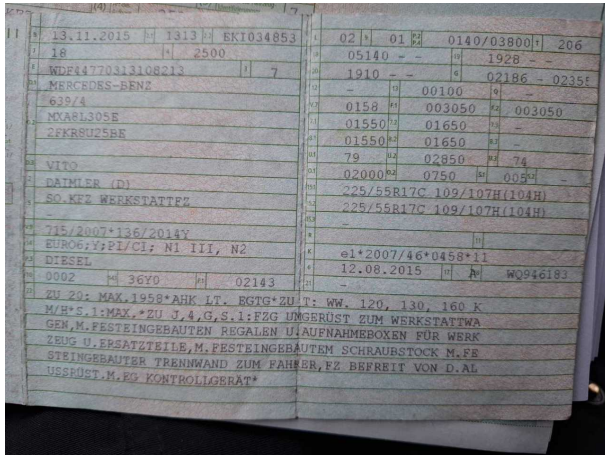 13.11.2015 1313 EKI034853
18 2500
WDF44770313108213 7
MERCEDES-BENZ
639/4
MXA8L305E
2FKR8U25BE
VITO
DAIMLER (D)
SO.KFZ WERKSTATTFZ
-
715/2007*136/2014Y
EURO6;Y;PI/CI; N1 III, N2
DIESEL
0002 36Y0 02143
02 01 0140/03800 206
05140 - - 1928 - -
1910 - - 02186 - 02355
- 00100 -
0158 003050 003050
01550 01650 -
01550 01650 -
79 02850 74
02000 0750 005 -
225/55R17C 109/107H(104H)
225/55R17C 109/107H(104H)
-
-
e1*2007/46*0458*11
12.08.2015 A WQ946183
-
ZU 20: MAX.1958*AHK LT. EGTG*ZU T: WW. 120, 130, 160 K
M/H*S.1:MAX.*ZU J,4,G,S.1:FZG UMGERÜST ZUM WERKSTATTWA
GEN,M.FESTEINGEBAUTEN REGALEN U.AUFNAHMEBOXEN FÜR WERK
ZEUG U.ERSATZTEILE,M.FESTEINGEBAUTEM SCHRAUBSTOCK M.FE
STEINGEBAUTER TRENNWAND ZUM FAHRER,FZ BEFREIT VON D.AL
USRÜST.M.EG KONTROLLGERÄT*